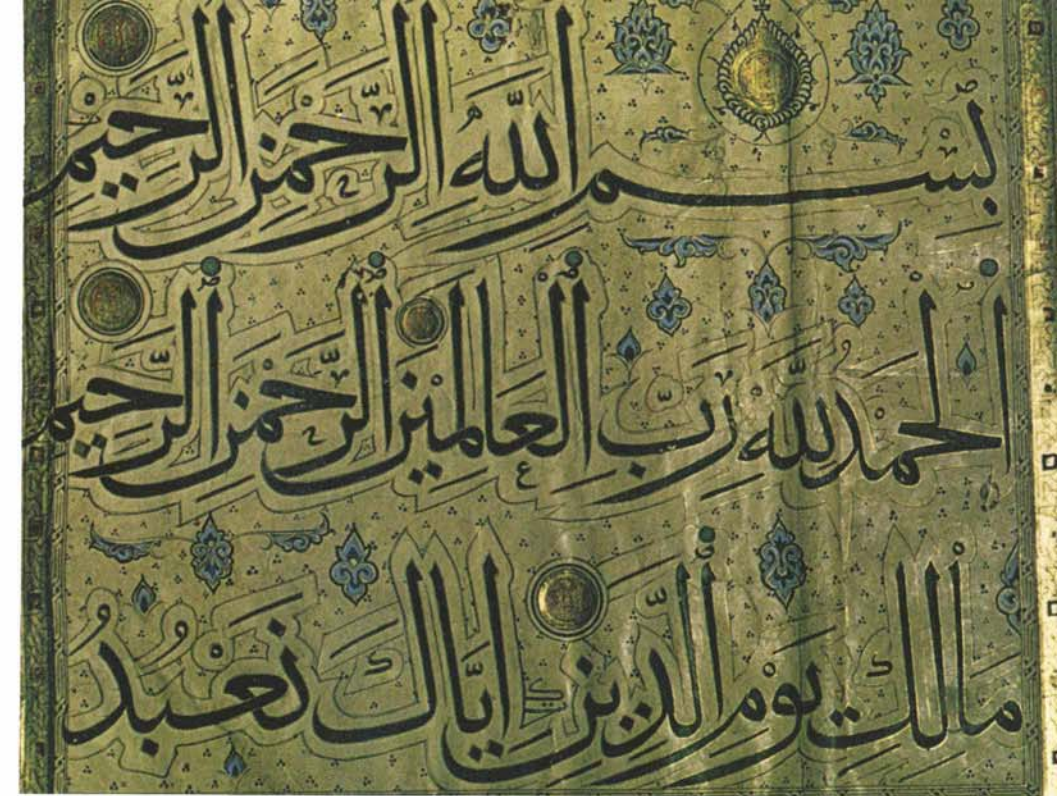 بِسْمِ اللَّهِ الرَّحْمٰنِ الرَّحِيمِ
الْحَمْدُ لِلَّهِ رَبِّ الْعَالَمِينَ الرَّحْمٰنِ الرَّحِيمِ
مَالِكِ يَوْمِ الدِّينِ إِيَّاكَ نَعْبُدُ